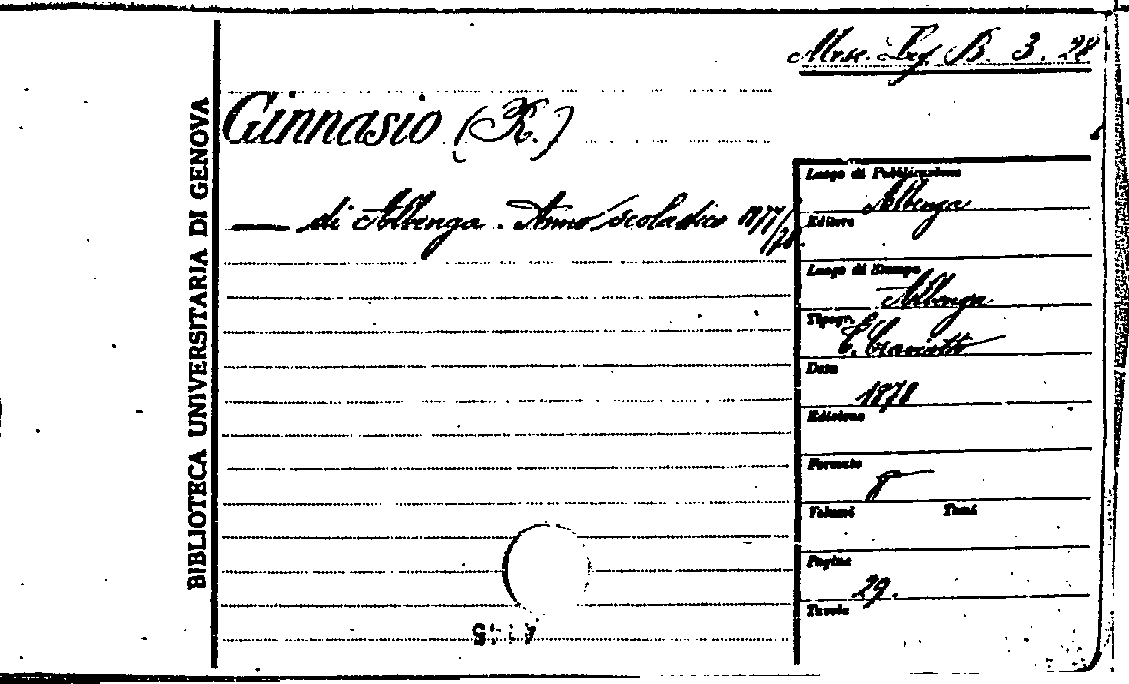 B. 3. 28
BIBLIOTECA UNIVERSITARIA DI GENOVA
Ginnasio (R.)
— di Albenga. Anno scolastico 1877/78.
Luogo di Pubblicazione
Albenga
Editore
Luogo di Stampa
Albenga
Tipogr.
Data
1878
Edizione
Formato
8
Volumi Tomi
Pagine
29.
Tavole